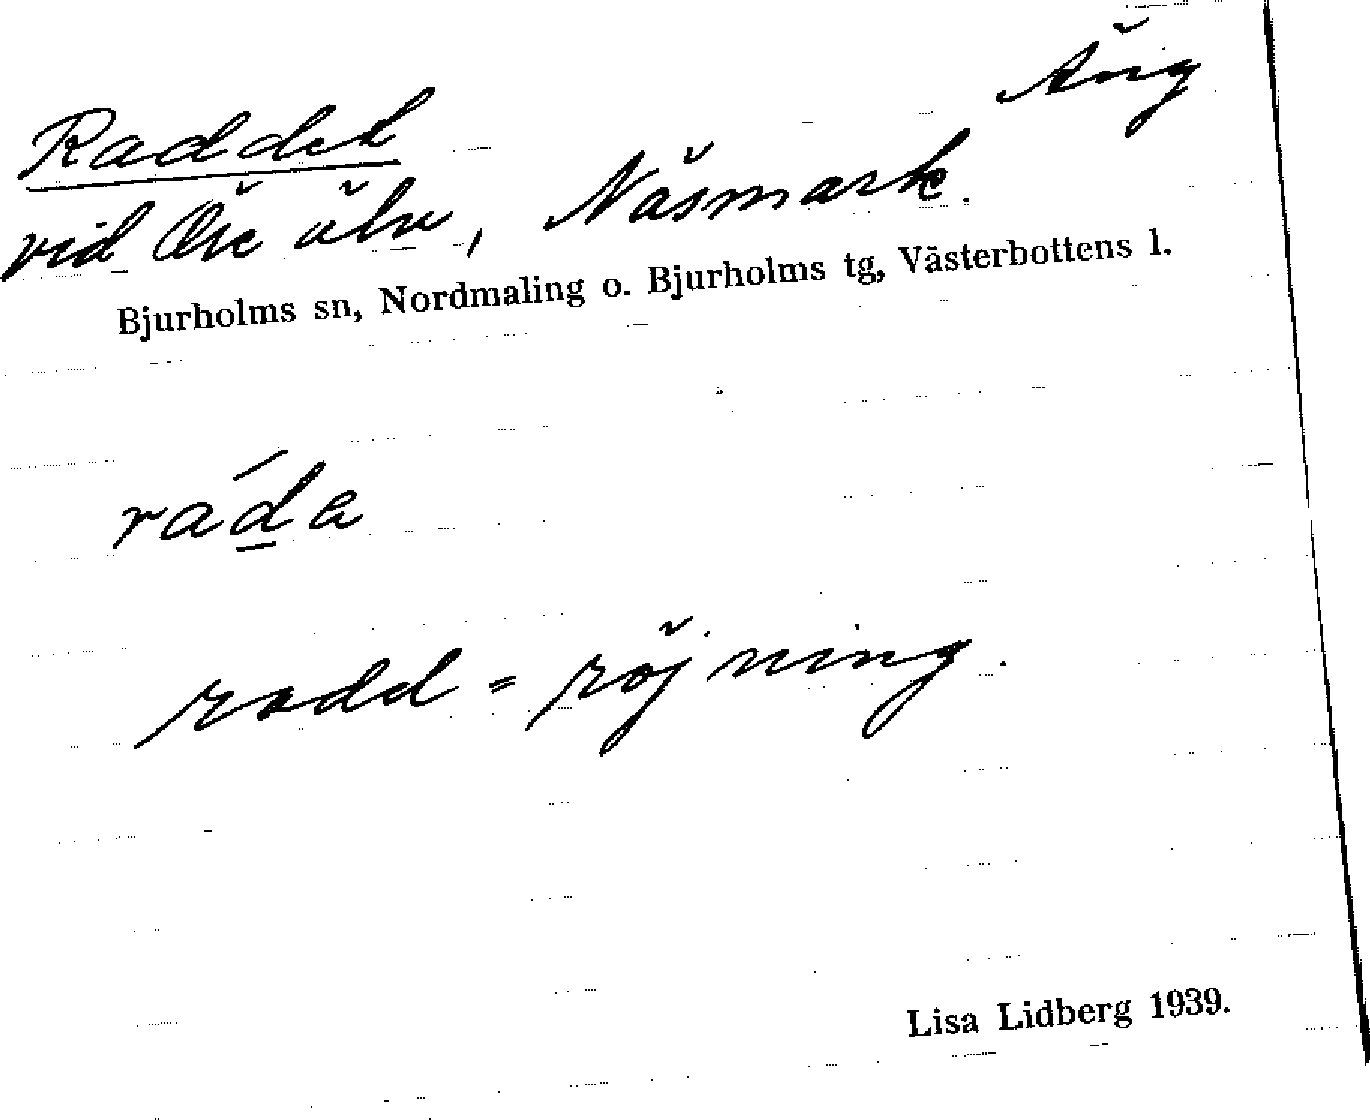 Äng
Raddet
vid Öre älv, Näsmark.
Bjurholms sn, Nordmaling o. Bjurholms tg, Västerbottens l.
ráda
rodd = röjning.
Lisa Lidberg 1939.